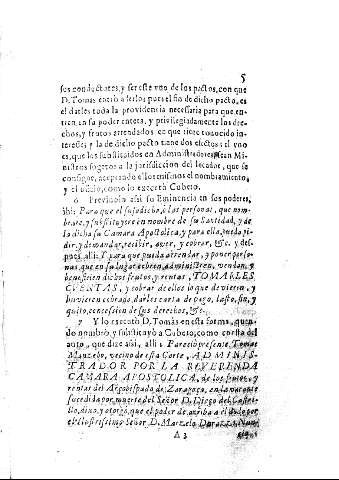 5
ses conductores, y ser este vno de los pactos, con que
D. Tomas entrò a serlos para el fin de dicho pacto, es
el darles toda la providencia necessaria para que en-
tren en su poder entera, y privilegiadamente los dre-
chos, y frutos arrendados en que tiene conocido in-
teresse; y la de dicho pacto tiene dos efectos: el vno
es, que los substituidos en Administradores sean Mi-
nistros sugetos a la jurisdiccion del lecedor, que se
consigue, aceptando ellos mismos el nombramiento,
y el oficio, como lo exerciò Cubero.
6 Previnolo assi su Eminencia en sus poderes,
ibi: Para que el susodicho, ò las personas, que nom-
brare, y substituyere en nombre de su Santidad, y de
la dicha su Camara Apostolica, y para que pueda pe-
dir, y demandar, recibir, aver, y cobrar, &c. y des-
pues alli: Y para que pueda arrendar, y poner perso-
nas que en su lugar cobren administren, vendan, y
beneficien dichos frutos, y rentas, TOMARLES
CUENTAS, y cobrar de ellos lo que devieren, y
huvieren cobrado, darles carta de pago, lasto, fin, y
quito, concession de sus derechos, &c.
7 Y lo executò D. Tomas en esta forma, quan-
do nombrò, y substituyò a Cubero, como consta del
auto, que dize assi, alli: Pareciò presente, Tomas
Manzebo, vecino de esta Corte, ADMINIS-
TRADOR POR LA REVERENDA
CAMARA APOSTOLICA, de los frutos, y
rentas del Arçobispado de Zaragoça, en la vacante
sucedida por muerte del Señor D. Diego del Casti-
llo, dixo, y otorgò, que el poder de arriba a el dado por
el Ilustrissimo Señor D. Marzelo Durazzo, Nun-
A 3